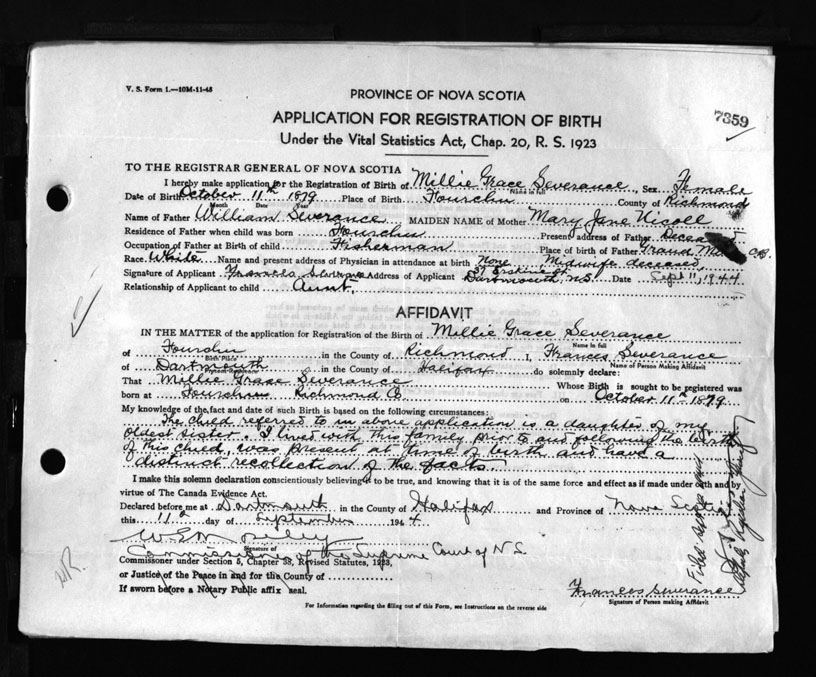 V. S. Form 1.—10M-11-43
PROVINCE OF NOVA SCOTIA
APPLICATION FOR REGISTRATION OF BIRTH
7359
Under the Vital Statistics Act, Chap. 20, R. S. 1923
TO THE REGISTRAR GENERAL OF NOVA SCOTIA
I hereby make application for the Registration of Birth of Millie Grace Severance, Sex Female
Name in full
Date of Birth October 11th 1879 Place of Birth Fourchu County of Richmond
Month Date Year
Name of Father William Severance MAIDEN NAME of Mother Mary Jane Nicoll
Residence of Father when child was born Fourchu Present address of Father Deceased
Occupation of Father at Birth of child Fisherman Place of birth of Father Grand
Race White Name and present address of Physician in attendance at birth None Midwife deceased
Signature of Applicant Frances Severance Address of Applicant 37 Erskine St Dartmouth N.S. Date Sept 11, 1944
Relationship of Applicant to child Aunt.
AFFIDAVIT
IN THE MATTER of the application for Registration of the Birth of Millie Grace Severance
Name in full
of Fourchu in the County of Richmond I, Frances Severance
Birth Place Name of Person Making Affidavit
of Dartmouth in the County of Halifax do solemnly declare:
Present Residence
That Millie Grace Severance Whose Birth is sought to be registered was
born at Fourchu Richmond Co on October 11th 1879
My knowledge of the fact and date of such Birth is based on the following circumstances:
The child referred to in above application is a daughter of my
oldest sister. I lived with this family prior to and following the birth
of this child, was present at time of birth and have a
distinct recollection of the facts.
I make this solemn declaration conscientiously believing it to be true, and knowing that it is of the same force and effect as if made under oath and by
virtue of The Canada Evidence Act.
Declared before me at Dartmouth in the County of Halifax and Province of Nova Scotia
this 11th day of September 1944
Signature of
Commissioner of the Supreme Court of N.S.
Commissoner under Section 5, Chapter 38, Revised Statutes, 1923,
or Justice of the Peace in and for the County of
If sworn before a Notary Public affix seal.
Frances Severance
Signature of Person making Affidavit
For Information regarding the filling out of this Form, see Instructions on the reverse side